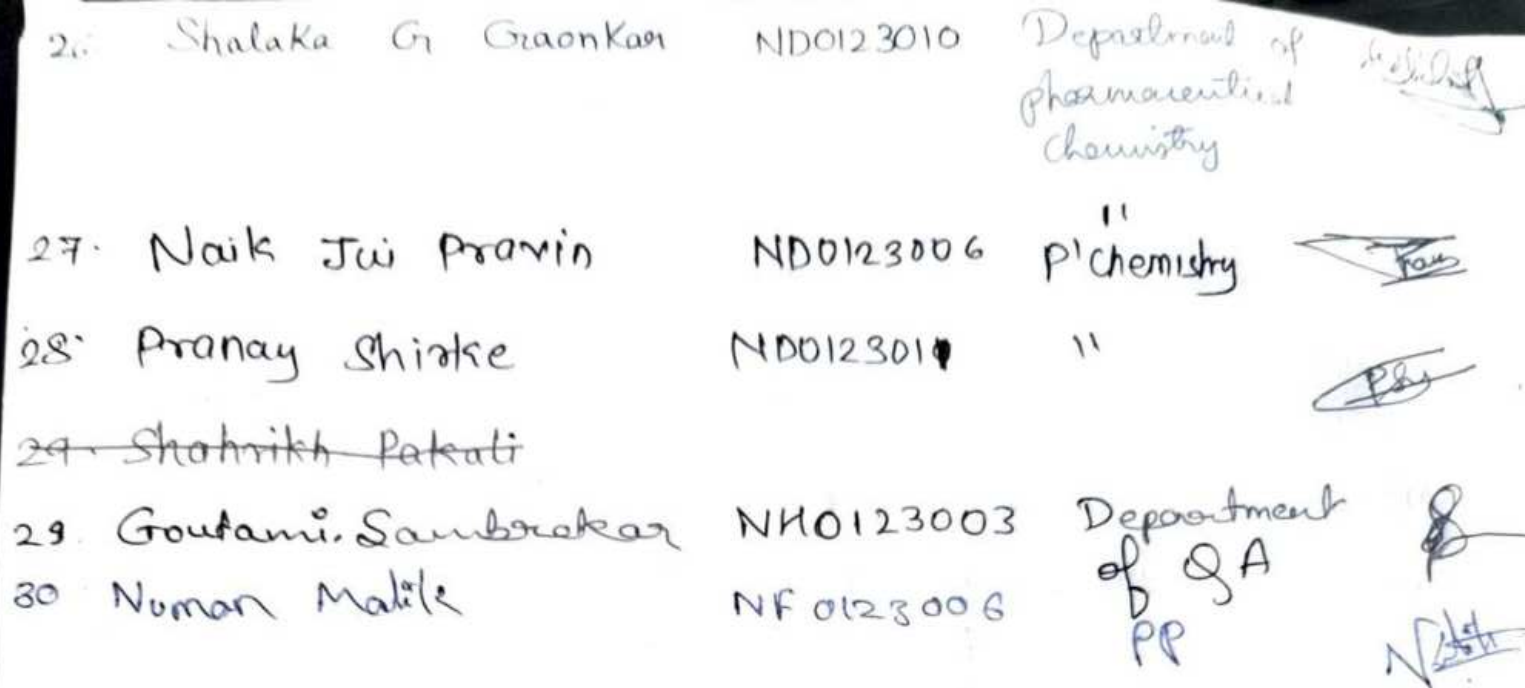 Shalaka G Gaonkar ND0123010 Department of
pharmaceutical
chemistry
"
27. Naik Jui Pravin ND0123006 P'chemistry
28. Pranay Shirke ND012301 "
29. Shahrikh Pakali
29. Goutami. Sambrekar NH0123003 Department
of QA
30 Numan Malik NF0123006
PP